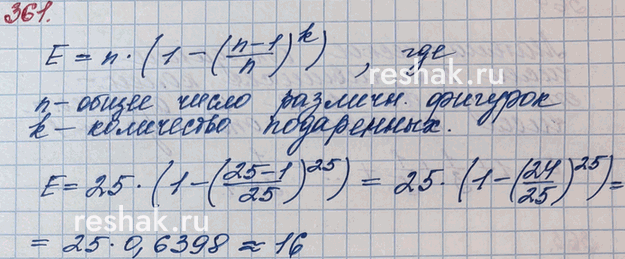 361.
E = n · (1 - (\frac{n-1}{n})^k), где
n - общее число различн. фигурок
k - количество подаренных.
E = 25 · (1 - (\frac{25-1}{25})^{25}) = 25 · (1 - (\frac{24}{25})^{25}) =
= 25 · 0,6398 ≈ 16
reshak.ru
reshak.ru
reshak.ru